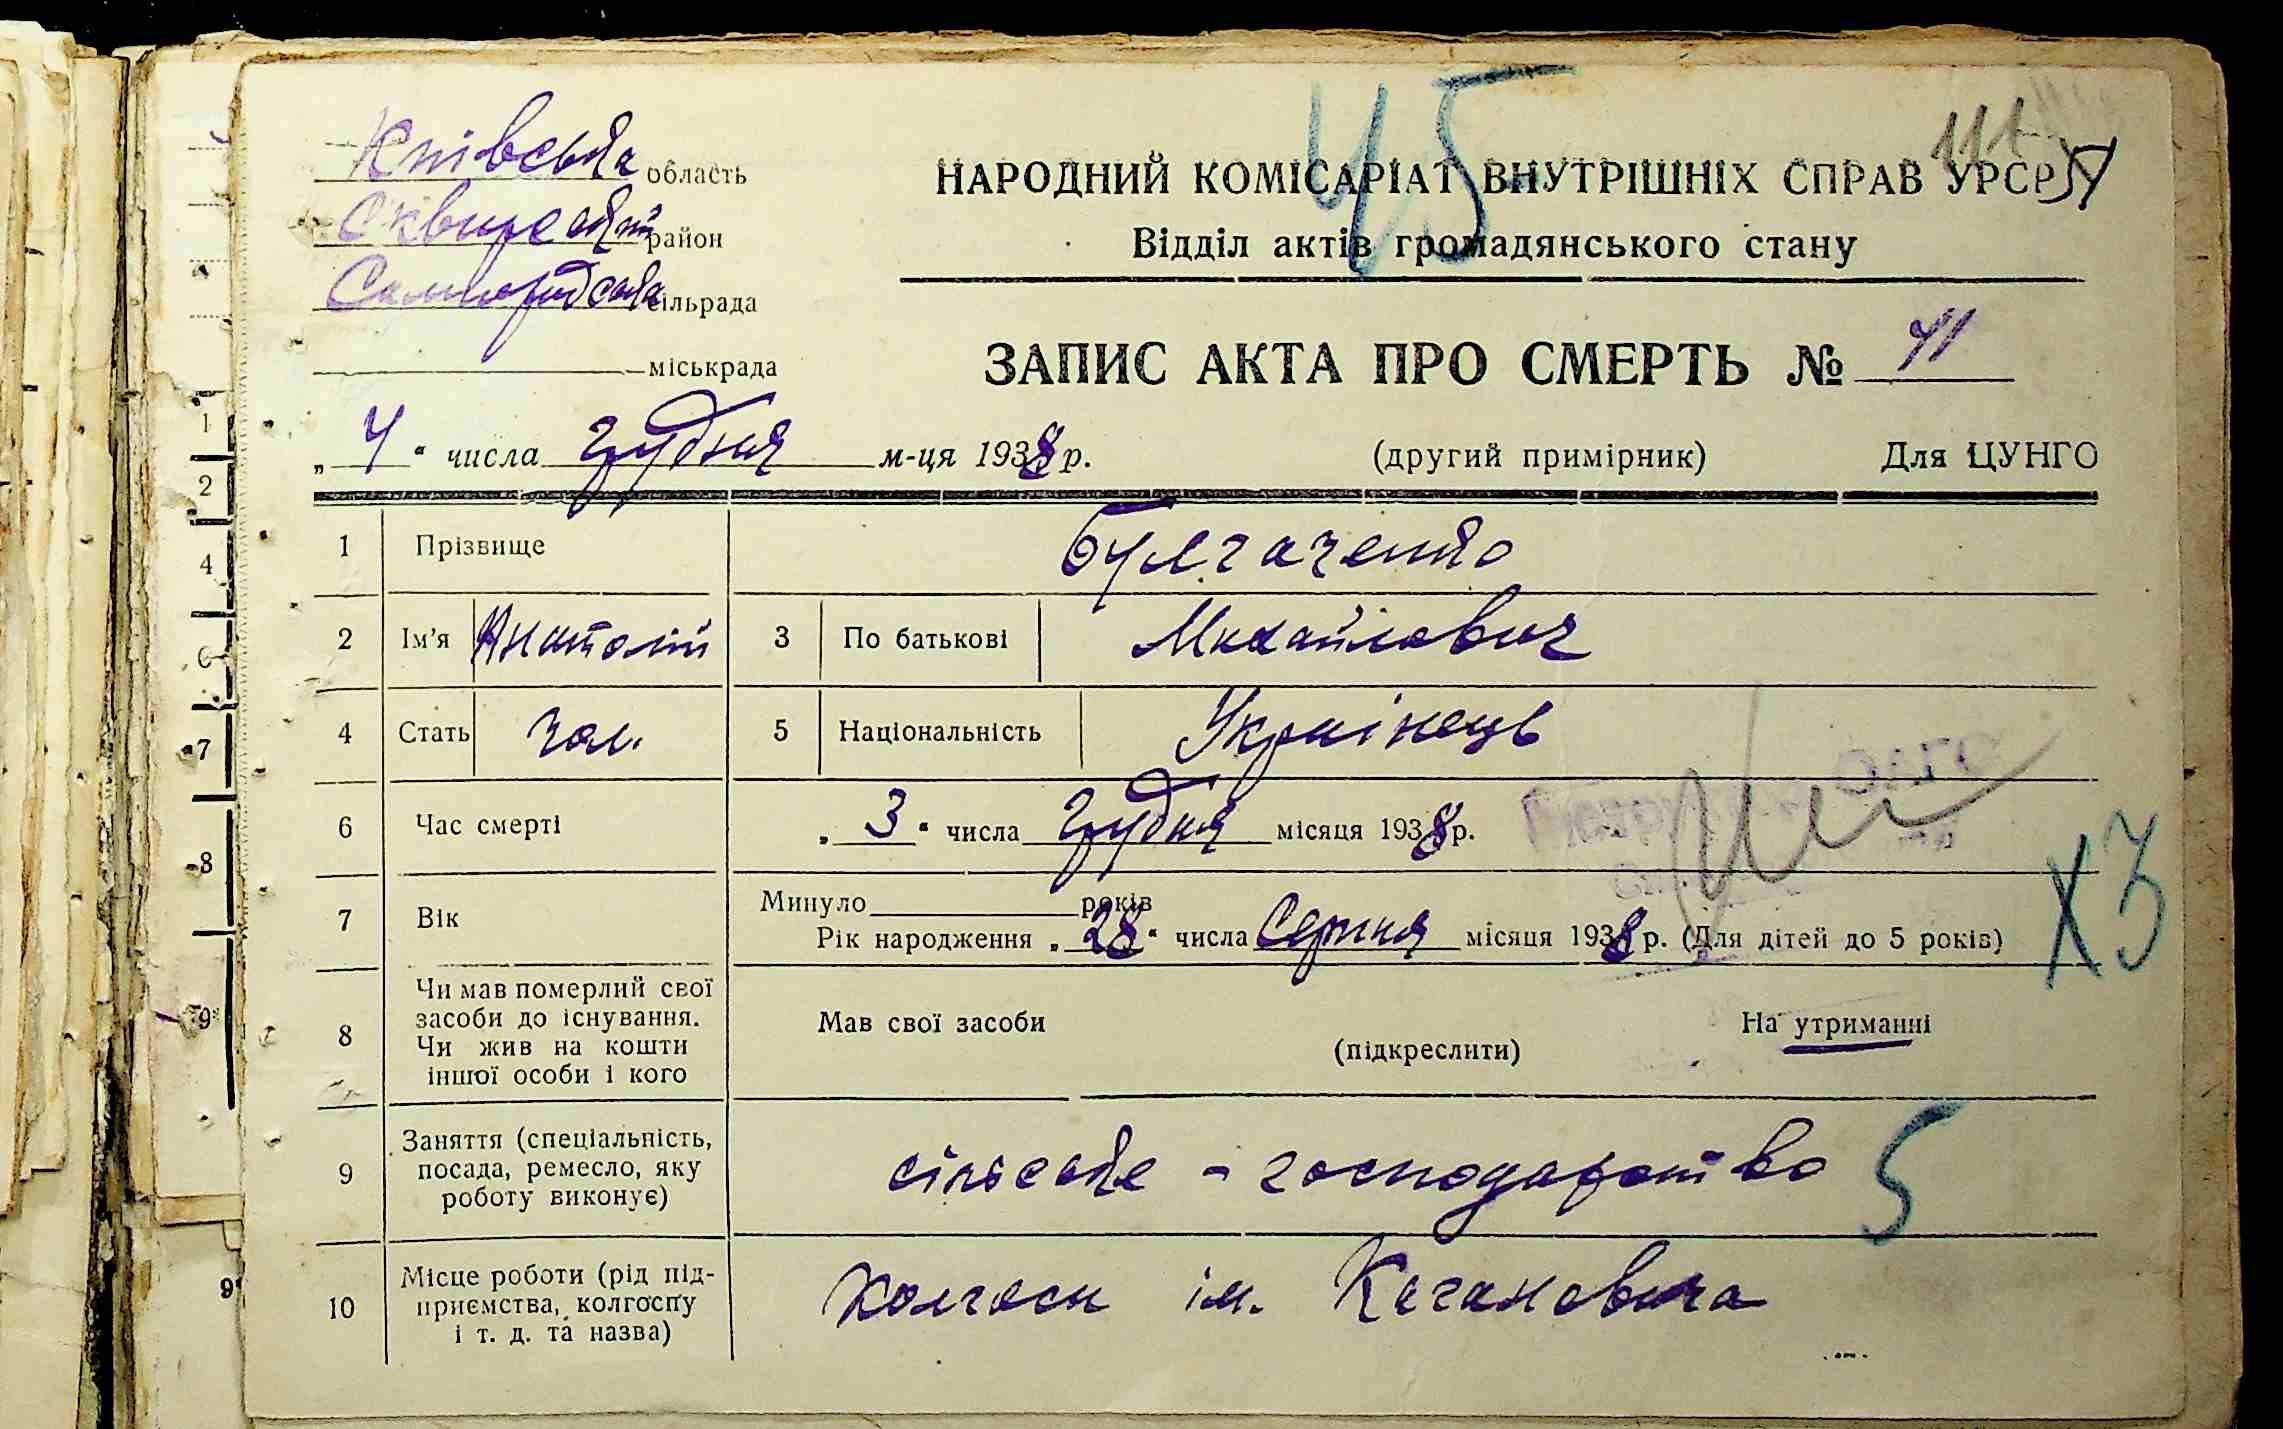 45
111
54
Київська область
Сквирський район
Самгородська сільрада
міськрада
НАРОДНИЙ КОМІСАРІАТ ВНУТРІШНІХ СПРАВ УРСР
Відділ актів громадянського стану
ЗАПИС АКТА ПРО СМЕРТЬ № 41
„4“ числа грудня м-ця 1938 р. (другий примірник) Для ЦУНГО
1 Прізвище Булгаченко
2 Ім'я Анатолій 3 По батькові Михайлович
4 Стать чол. 5 Національність Українець
6 Час смерті „3“ числа грудня місяця 1938 р.
7 Вік Минуло років
Рік народження „28“ числа Серпня місяця 1938 р. (Для дітей до 5 років)
х3
8 Чи мав померлий свої засоби до існування. Чи жив на кошти іншої особи і кого
Мав свої засоби (підкреслити) На утриманні
9 Заняття (спеціальність, посада, ремесло, яку роботу виконує)
сільське - господарство 5
10 Місце роботи (рід під-
приємства, колгоспу
і т. д. та назва)
Колгосп ім. Кагановича
1
2
4
6
7
8
9
9